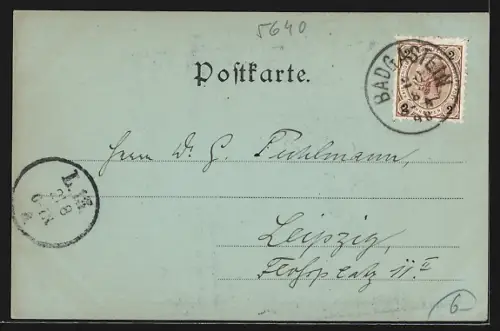 5640
Postkarte.
BADGASTEIN
98
Herrn Dr. G. Puhlmann,
L. 13.
21 8
Leipzig,
Floßplatz 11 II
6-